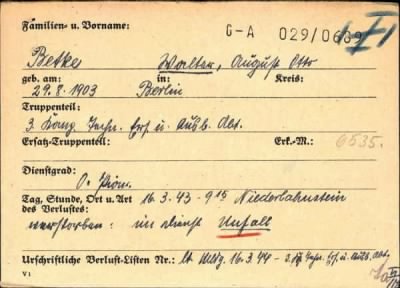 Familien- u. Vorname:
G-A 029/0639
Betke Walter, August Otto
geb. am: in: Kreis:
29.8.1903 Berlin
Truppenteil:
3. Komp. Fahr. Ers. u. Ausb. Abt.
Ersatz-Truppenteil: Erk.-M.: 6535.
Dienstgrad:
O. Pion.
Tag, Stunde, Ort u. Art 16.3.43 - 9 15 Niederlahnstein
des Verlustes:
verstorben: im Dienst Unfall
Urschriftliche Verlust-Listen Nr.: lt 16.3.44 - Fahr. Ers. u. Ausb. Abt.
V 1